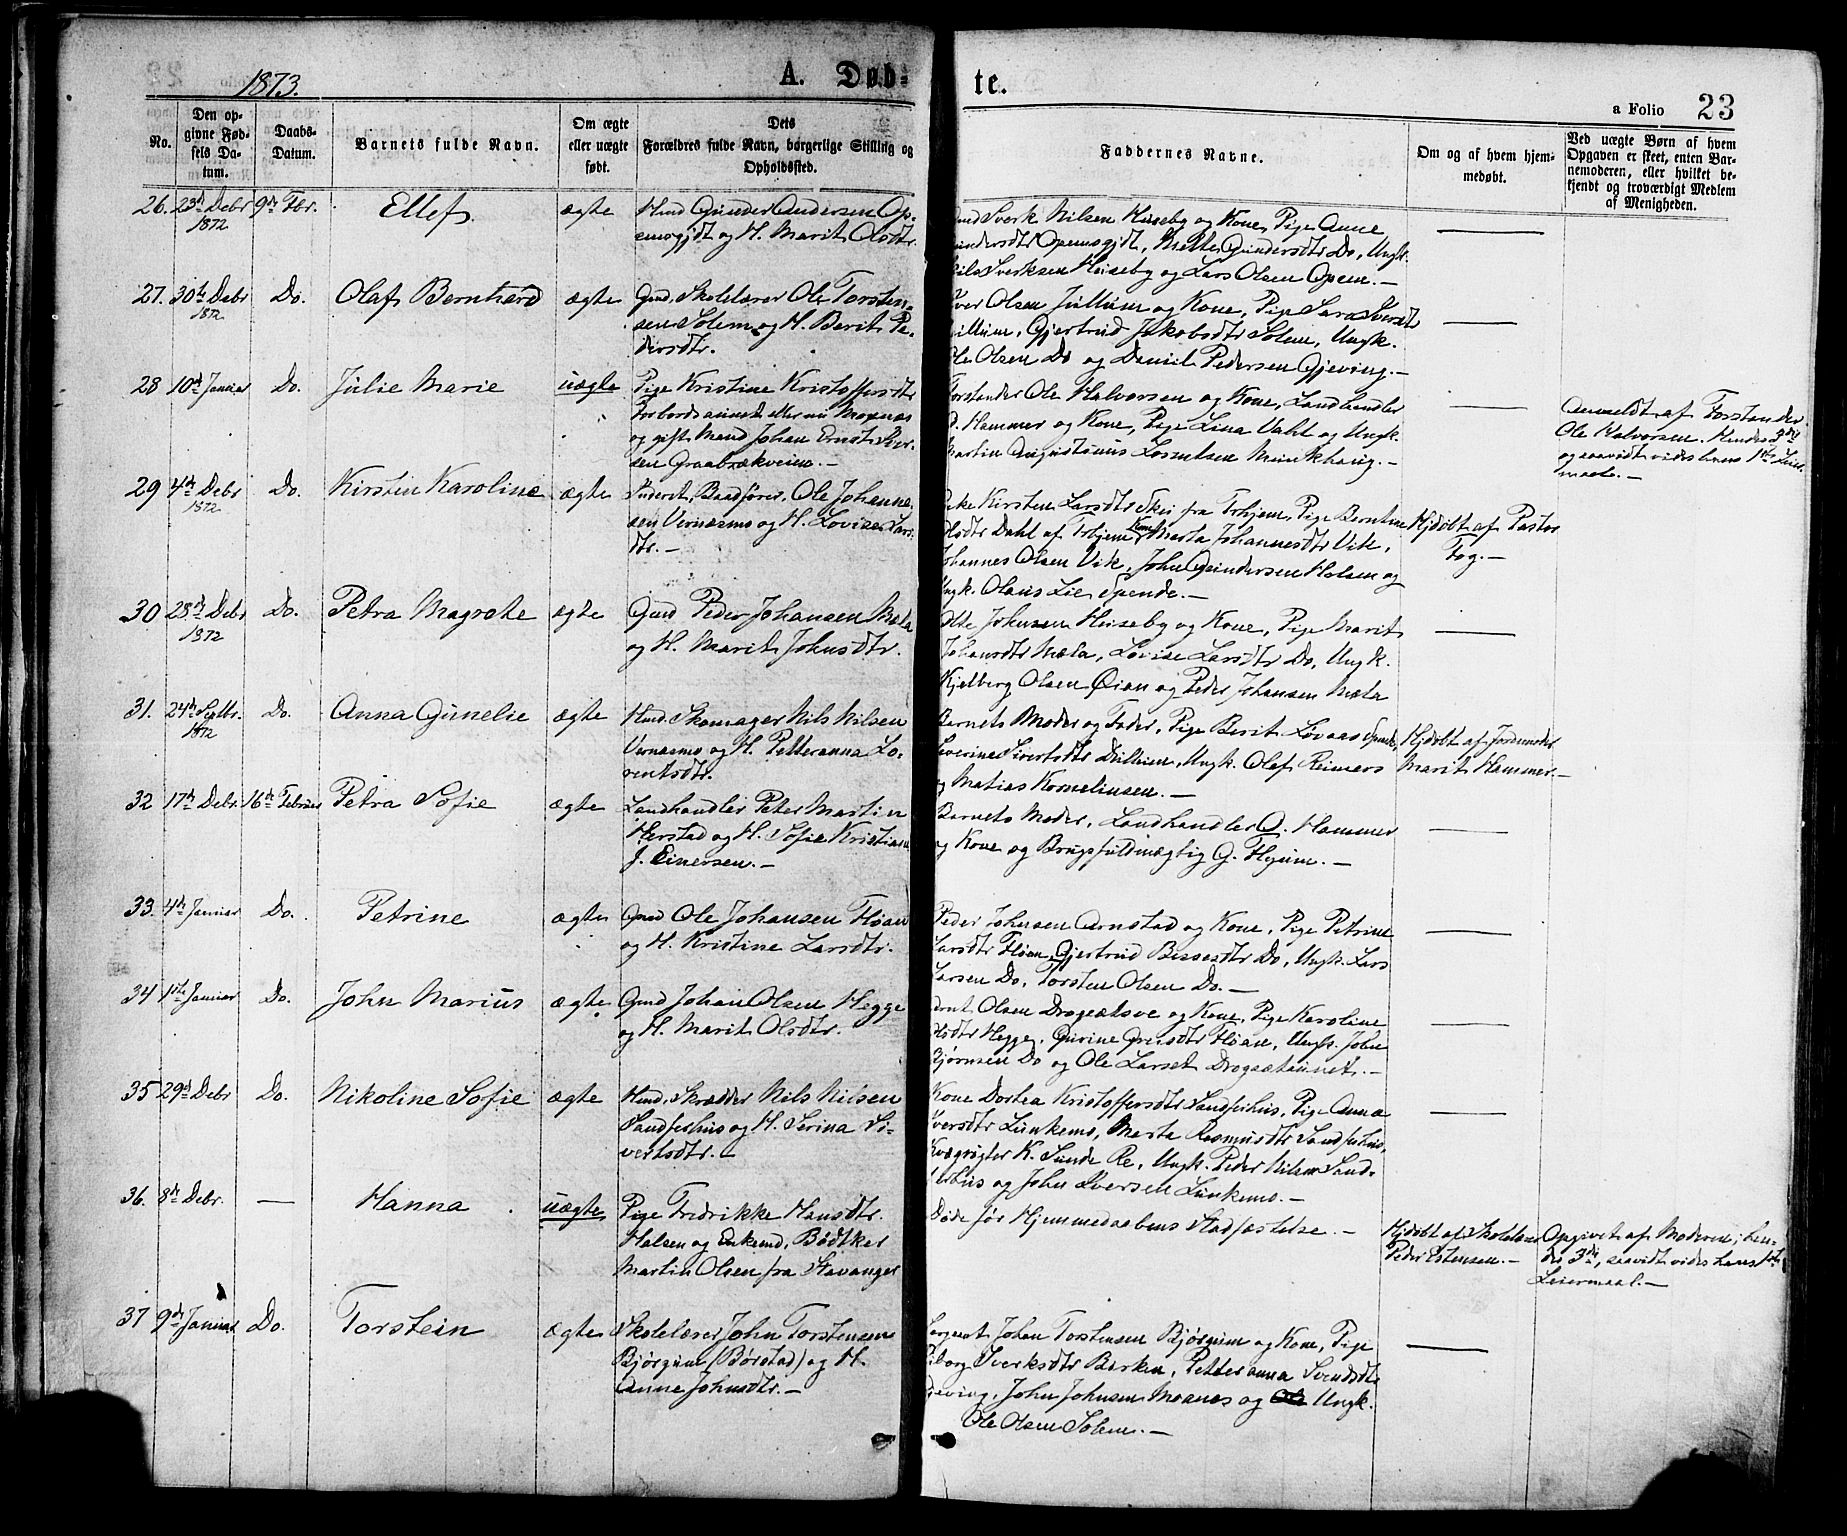 1873.
A. Døb-
te.
a Folio 23
No.
Den op-
givne Fød-
sels Da-
tum.
Daabs-
Datum.
Barnets fulde Navn.
Om ægte
eller uægte
født.
Dets
Forældres fulde Navn, borgerlige Stilling og
Opholdssted.
Faddernes Navne.
Om og af hvem hjem-
medøbt.
Ved uægte Børn af hvem
Opgaven er skeet, enten Bar-
nemoderen, eller hvilket be-
kjendt og troværdigt Medlem
af Menigheden.
26. 23de Debr 1872
9de Fbr.
Ellef.
ægte
Hmd Gunder Andersen Op-
emsgjdt og H. Marit Olsdtr.
Sverk Nilsen Huseby og Kone, Pige Anne
Gundersdtr Opemsgjdt, Mette Gundersdtr Do, Ungk.
Nils Sverksen Huseby og Lars Olsen Opem.-
27. 30te Debr 1872
Do.
Olaf Bernhard
ægte
Gmd, Skolelærer Ole Torsten-
sen Solem og H. Berit Pe-
dersdtr.
Iver Olsen Jullum og Kone, Pige Sara Iversdt
Jullum, Gjertrud Jakobsdtr Solem, Ungk.
Ole Olsen Do og Daniel Pedersen Gjeving.-
28 10de Januar
Do.
Julie Marie
uægte
Pige Kristine Kristoffersdtr
Forbordsaunet eller nu Moxnes
og gift Mand Johan Ernst Iver-
sen Graabrækveien.-
Forstander Ole Halvorsen og Kone, Landhandler
O. Hammer og Kone, Pige Lina Vahl og Ungk.
Martin Augustinus Lorentsen Munkhaug.-
Anmeldt af Forstander
Ole Halvorsen. Hendes 3die
og saavidt vides hans 1ste Leier-
maal.-
29 4de Debr 1872
Do.
Kirsten Karoline
ægte
Inderst, Baadfører, Ole Johanne-
sen Vernæsmo og H. Lovise Lars-
dtr.-
Enke Kirsten Larsdtr Skei fra Trhjem, Pige Berntine
Olsdtr Dahl af Trhjem, Kone Marta Johannesdtr Vik,
Johannes Olsen Vik, John Gundersen Halsen og
Ungk. Olaus Lie Spende.-
Hjdøbt af Pastor
Fog.-
30 28de Debr 1872
Do.
Petra Magrete
ægte
Gmd Peder Johansen Mæla
og H. Marit Johnsdtr.
Otte Johnsen Huseby og Kone, Pige Marit
Johansdtr Mæla, Lovise Larsdtr Do, Ungk.
Kjelberg Olsen Øian og Peder Johansen Mæla
31. 24de Septbr. 1872
Do.
Anna Gunelie
ægte
Hmd. Skomager Nils Nilsen
Vernæsmo og H. Petteranna Lo-
rentsdtr.
Barnets Moder og Fader, Pige Berit Løvaas Spende,
Severine Sivertsdtr Dullum, Ungk. Olaf Reimers
og Matias Kornelinsen.-
Hjdøbt af Jordmoder
Marit Hammer.-
32 17de Debr
16de Februar
Petra Sofie
ægte
Landhandler Peter Martin
Herstad og H. Sofie Kristian
J. Einersen.-
Barnets Moder, Landhandler O. Hammer
og Kone og Brugsfuldmægtig G. Hejum.-
33. 4de Januar
Do.
Petrine
ægte
Gmd Ole Johansen Høan
og H. Kristine Larsdtr.
Peder Johnsen Arnstad og Kone, Pige Petrine
Larsdtr Høan, Gjertrud Bersesdtr Do, Ungk. Lars
Larsen Do, Torsten Olsen Do.-
34 1ste Januar
Do.
John Marius
ægte
Gmd Johan Olsen Hegge
og H. Marit Olsdtr.
Bernt Olsen Drogsætsve og Kone, Pige Karoline
Olsdtr Hegge, Gurine Grensdtr Høan, Ungk. John
Bjørnsen Do og Ole Larset Drogsætaunet.-
35 29de Debr
Do.
Nikoline Sofie
ægte
Hmd, Skrædder Nils Nilsen
Sandferhus og H. Serina Si-
vertsdtr.-
Kone Dortea Kristoffersdtr Sandferhus, Pige Anna
Iversdtr Lunkemo, Marta Rasmusdtr Sandferhus,
Kvægrøgter K. Sunde Re, Ungk. Peder Nilsen Sand-
ferhus og John Iversen Lunkemo.-
36. 8de Debr.
—
Hanna
uægte
Pige Fredrikke Hansdtr.
Halsen og Enkemd. Bødtker
Martin Olsen fra Stavanger
Døde før Hjemmedaabens Stadfæstelse.-
Hjdøbt af Skolelærer
Peder Estensen.-
Opgivet af Moderen; hen-
des 3die, saavidt vides hans 1ste
Leiermaal.-
37 9de Januar
Do.
Torstein
ægte
Skolelærer John Torstensen
Bjørgum (Børstad) og H.
Anne Johnsdtr.-
Sergeant Johan Torstensen Bjørgum og Kone, Pige
Siborg Sverksdtr Barken, Petteranna Svendsdtr
Gjeving, John Johnsen Moanes og Ungk.
Ole Olsen Solem.-